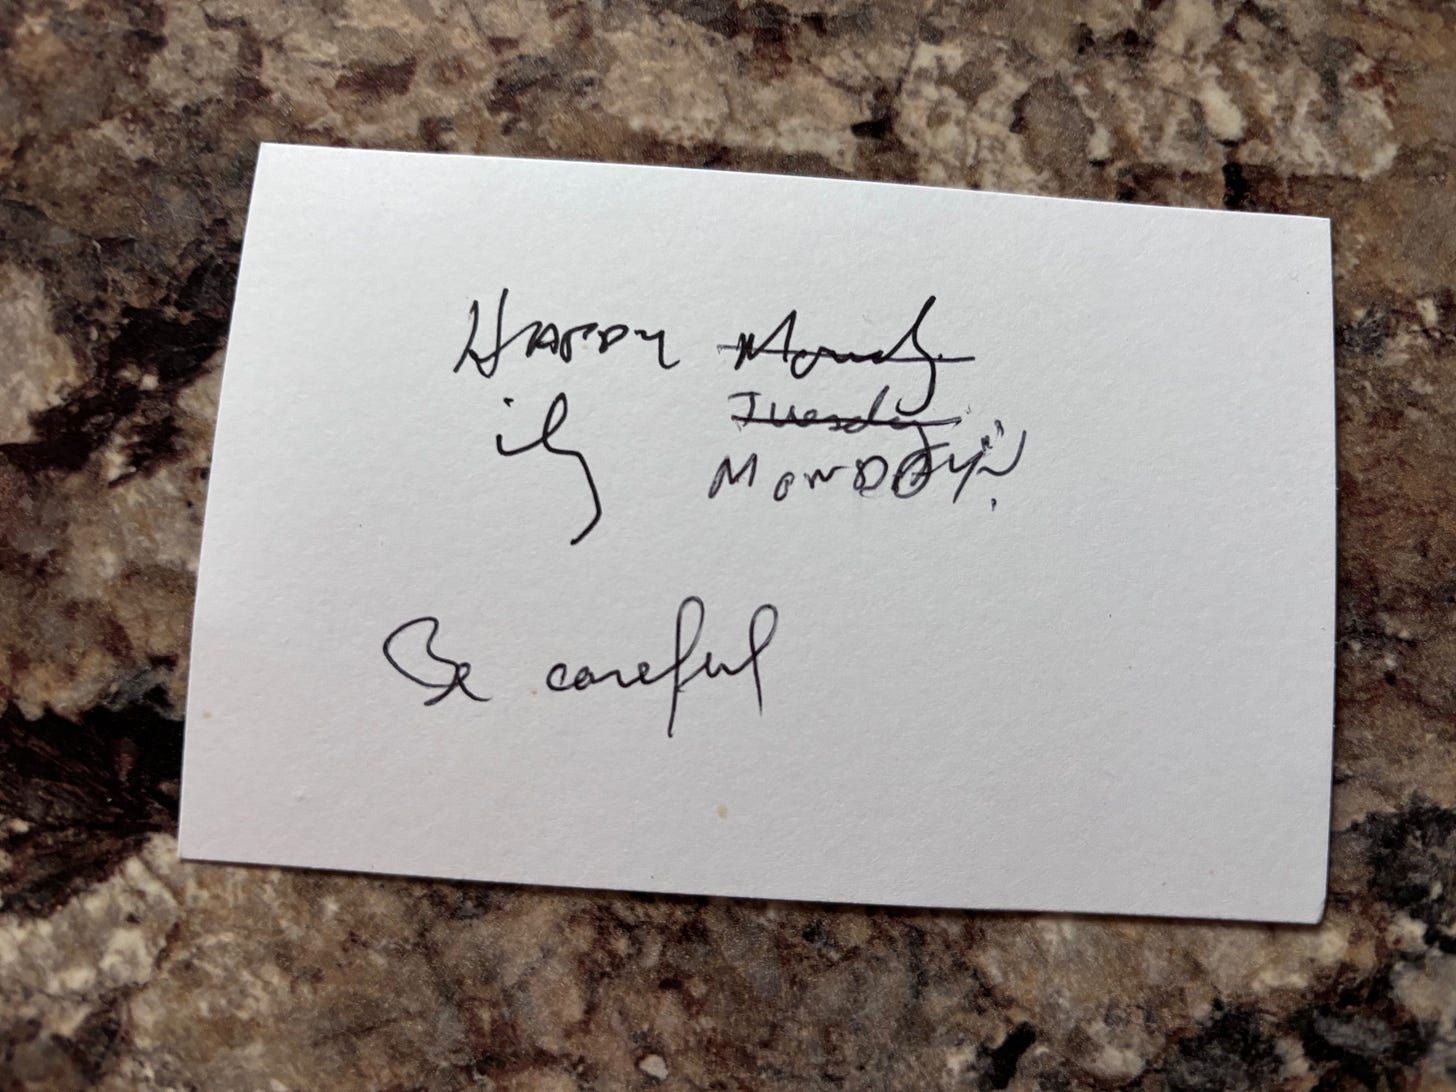 HAPPY Monday
Tuesday
ily MONDAY!!
Be careful